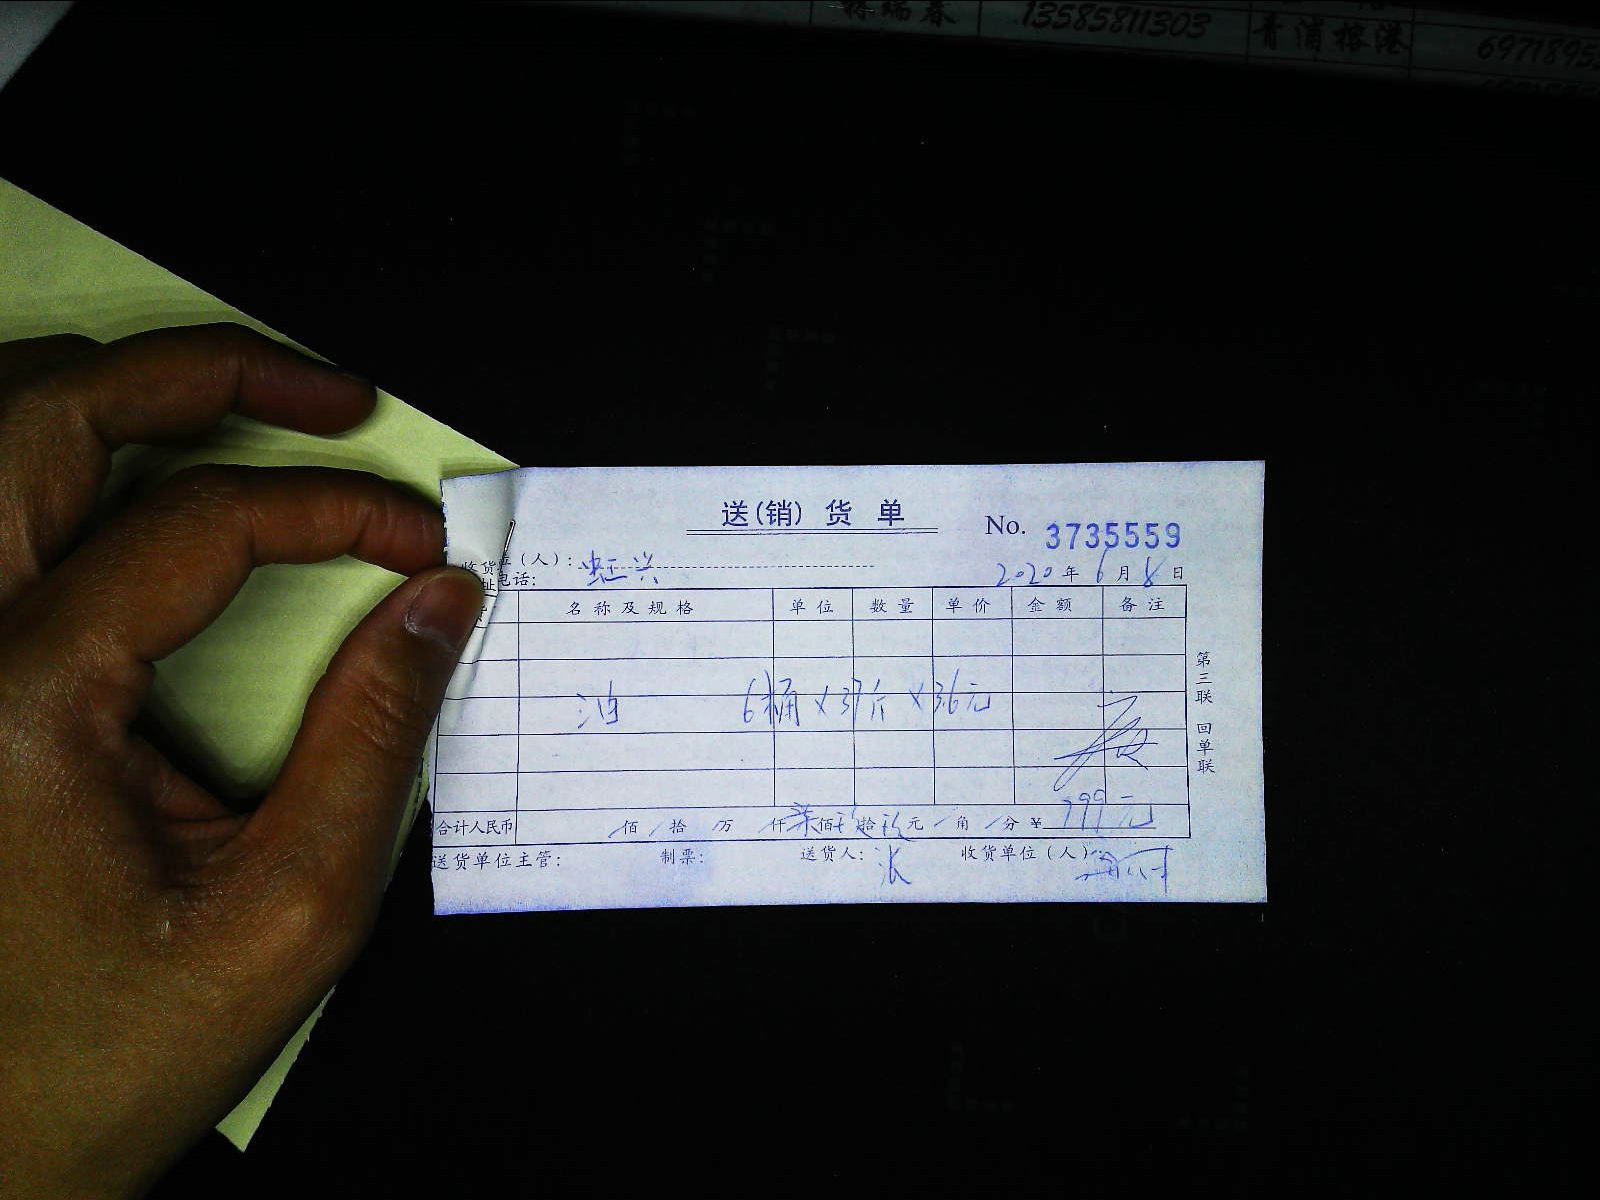 13585811303 青浦榕港 6971895
送(销)货单
No. 3735559
收货 位(人):
址 电话:
2020年6月8日
名称及规格 单位 数量 单价 金额 备注
油 6桶×37斤×3.6元
合计人民币 /佰/拾/万 仟柒佰玖拾玖元/角/分¥799元
送货单位主管: 制票: 送货人:张 收货单位(人):
第三联 回单联